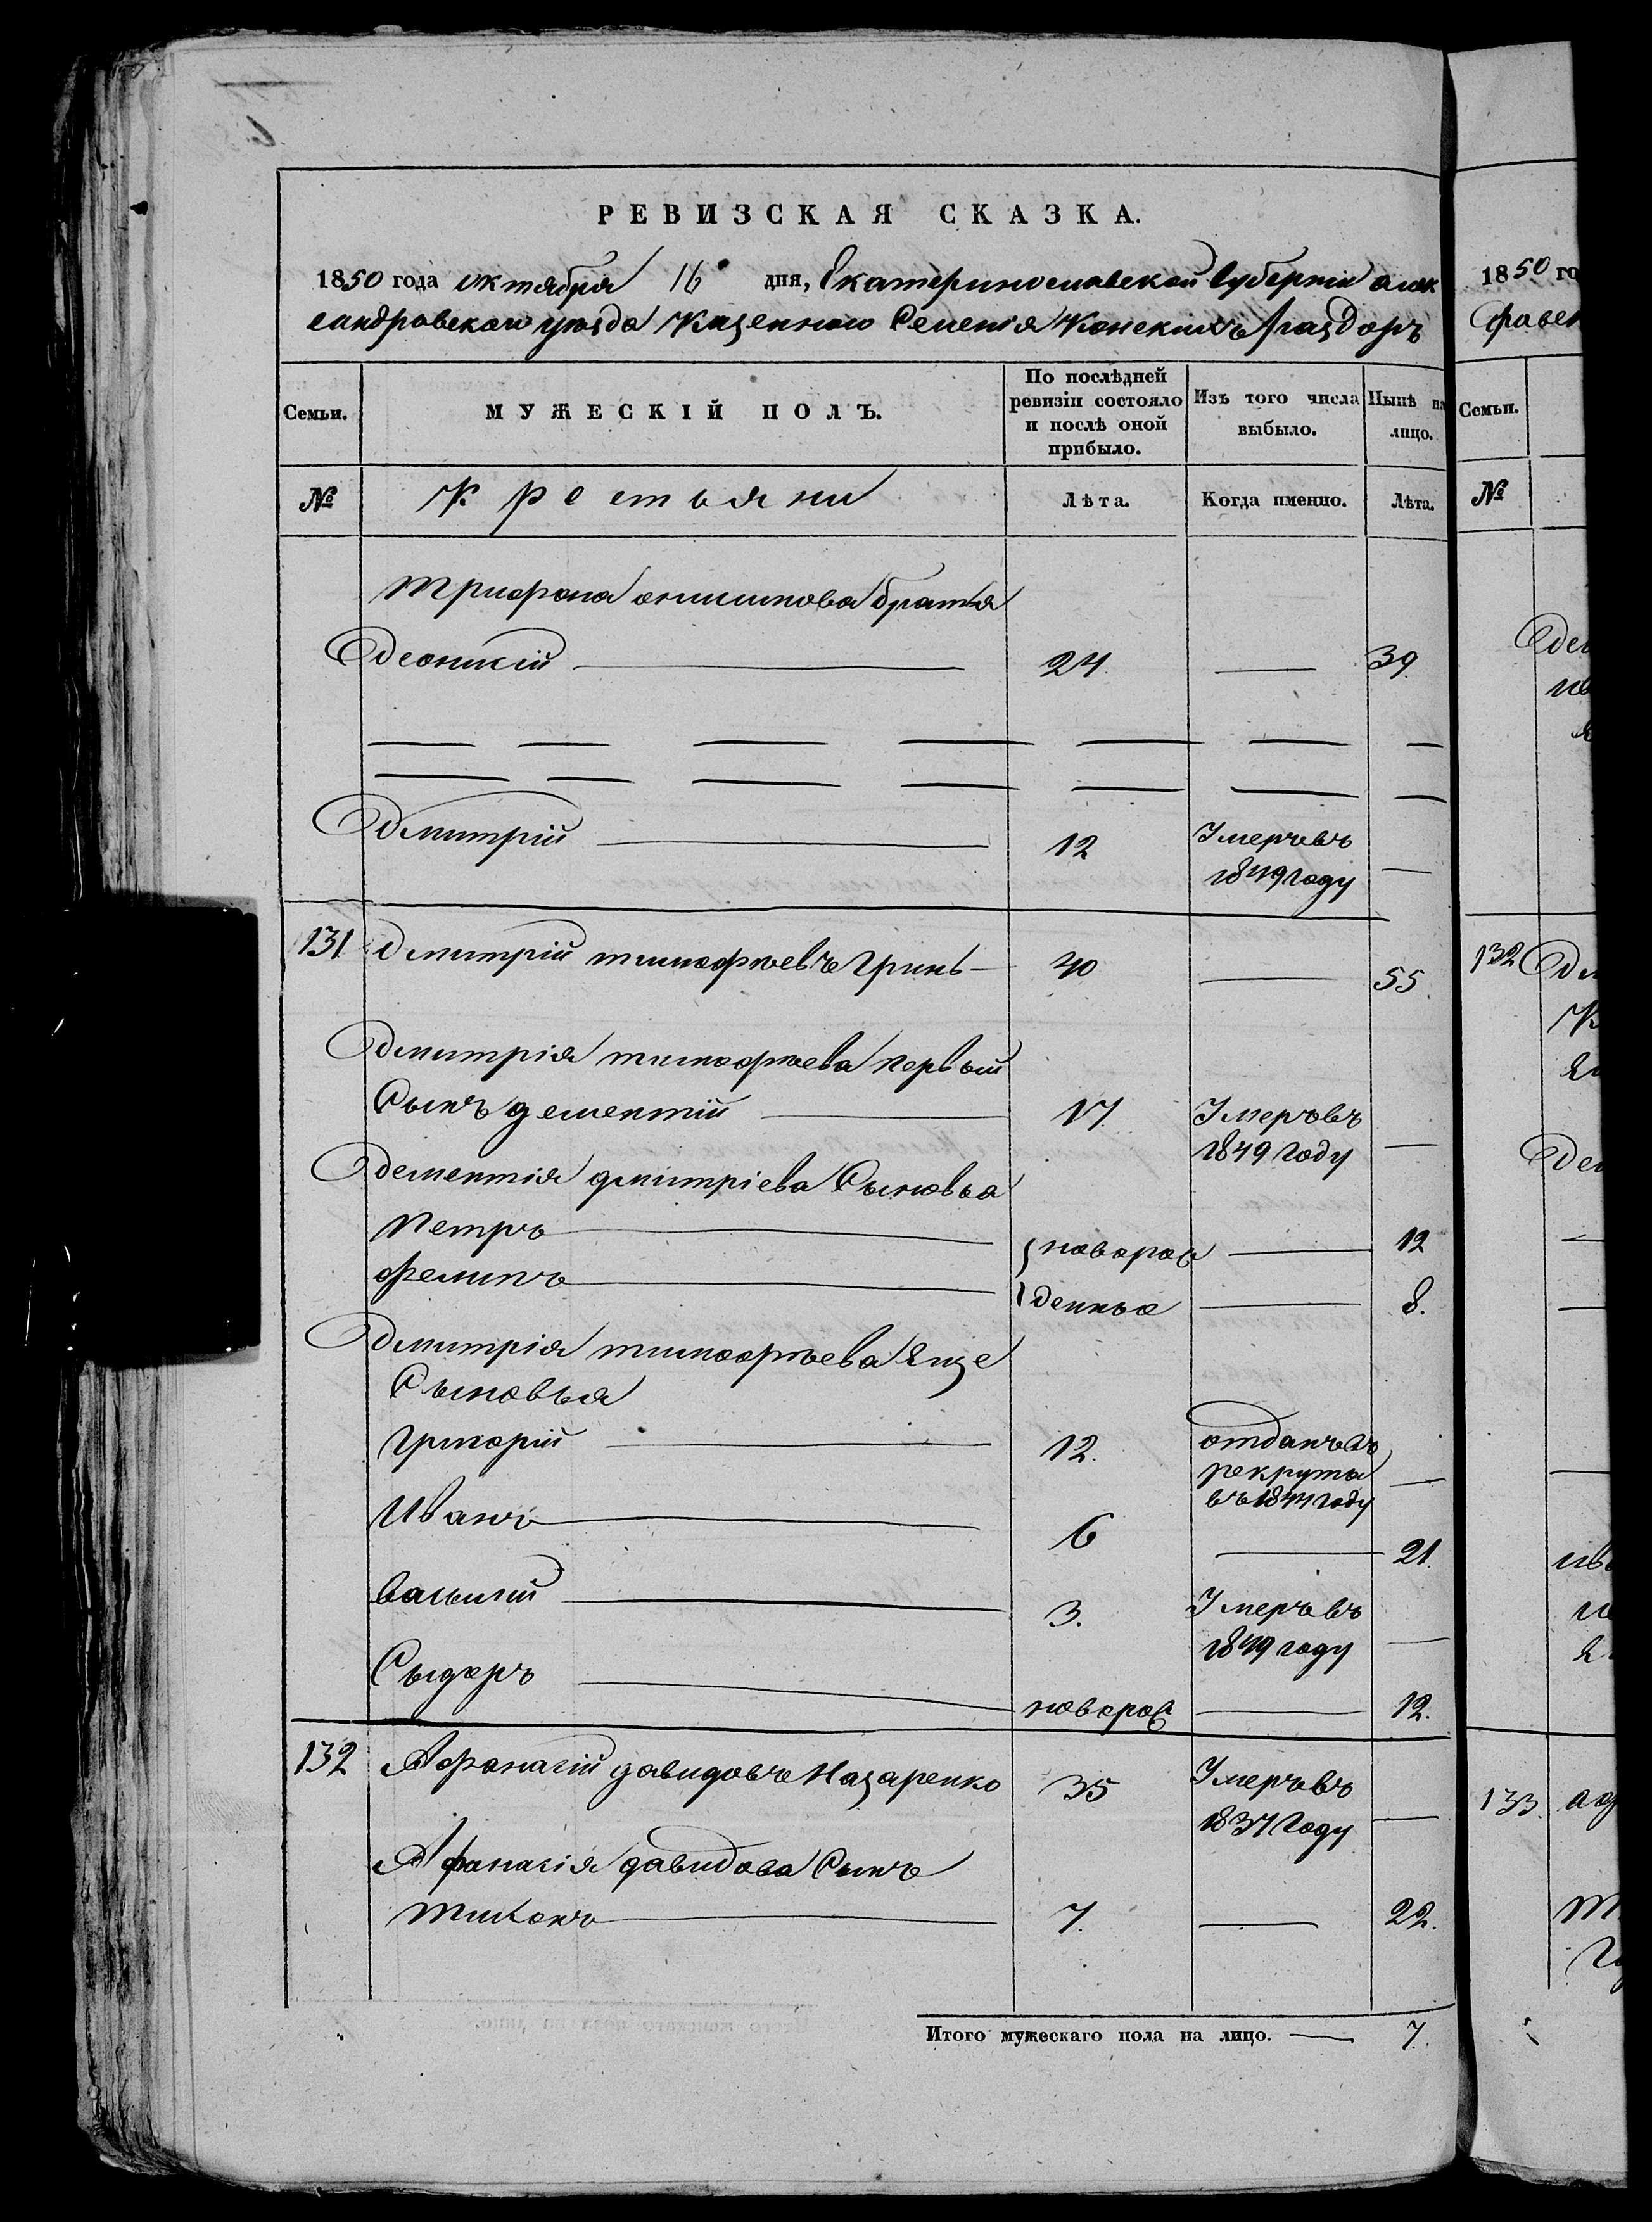 РЕВИЗСКАЯ СКАЗКА.
1850 года октября 16 дня, Екатеринославской Губернии алек
сандровскаго уезда Казенного Селенія Конскихъ Раздоръ
Семьи.
МУЖЕСКІЙ ПОЛЪ.
По послѣдней ревизіи состояло и послѣ оной прибыло.
Изъ того числа выбыло.
Нынѣ на лицо.
№
Крестьяни
Лѣта.
Когда именно.
Лѣта.
Трифона онишкова братья
Деонисій 24. 39.
Дмитрій 12 Умеръ въ
1849 году
131 Дмитрій тимофѣевъ Гринь 40 55.
Дмитрія тимофѣева первый
Сынъ дементій 17. Умеръ въ
1849 году
Дементія дмитріева Сыновья
Петръ новорож 12
филипъ денные 8.
Дмитрія тимофѣева Еще
Сыновья
Григорій 12. отданъ въ
рекруты
въ 1844 году
Иванъ 6 21.
Василий 3. Умеръ въ
1849 году
Сыдоръ новорож 12.
132 Афанасій давидовъ Назаренко 35 Умеръ въ
1837 году
Афанасія давидова Сынъ
Тихонъ 7. 22.
Итого мужескаго пола на лицо. 7.
1850 го
Семьи.
№
132
133.